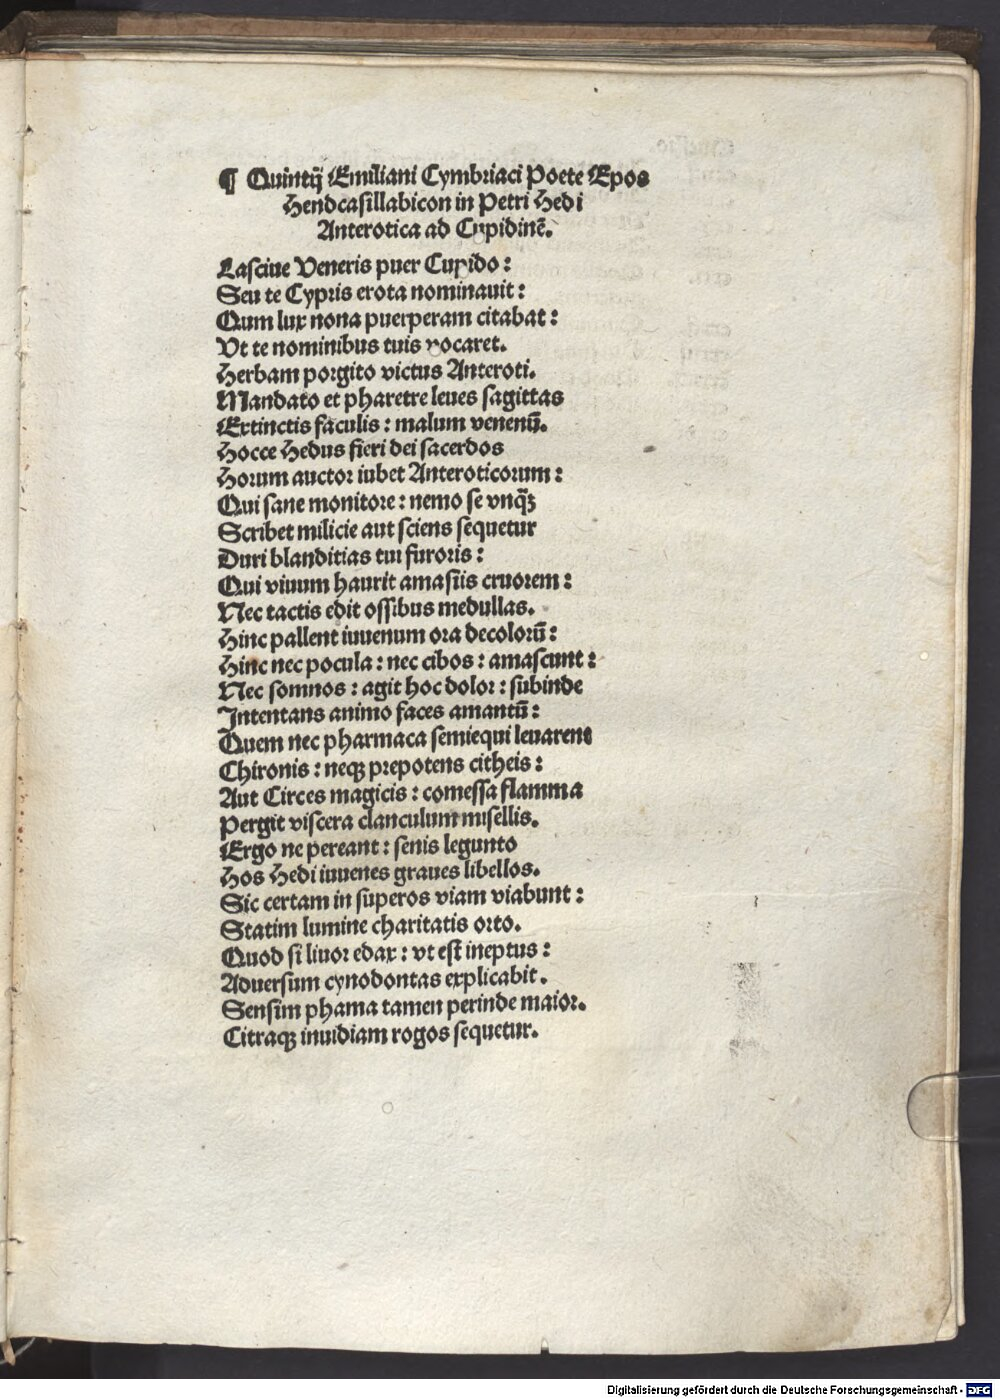 ¶ Quintij Emiliani Cymbriaci Poete Epos
Hendcasillabicon in Petri Hedi
Anterotica ad Cupidinē.
Lasciue Veneris puer Cupido:
Seu te Cypris erota nominauit:
Qum lux nona puerperam citabat:
Vt te nominibus tuis vocaret.
Herbam porgito victus Anteroti.
Mandato et pharetre leues sagittas
Extinctis faculis: malum venenū.
Hocce Hedus fieri dei sacerdos
Horum auctor iubet Anteroticorum:
Qui sane monitore: nemo se vnqꝫ
Scribet milicie aut sciens sequetur
Duri blanditias tui furoris:
Qui viuum haurit amasiis cruorem:
Nec tactis edit ossibus medullas.
Hinc pallent iuuenum ora decolorū:
Hinc nec pocula: nec cibos: amascunt:
Nec somnos: agit hoc dolor: subinde
Intentans animo faces amantū:
Quem nec pharmaca semiequi leuarent
Chironis: neqꝫ prepotens citheis:
Aut Circes magicis: comessa flamma
Pergit viscera clanculum misellis.
Ergo ne pereant: senis legunto
Hos Hedi iuuenes graues libellos.
Sic certam in superos viam viabunt:
Statim lumine charitatis orto.
Quod si liuor edax: vt est ineptus:
Aduersum cynodontas explicabit.
Sensim phama tamen perinde maior.
Citraqꝫ inuidiam rogos sequetur.
Digitalisierung gefördert durch die Deutsche Forschungsgemeinschaft - DFG